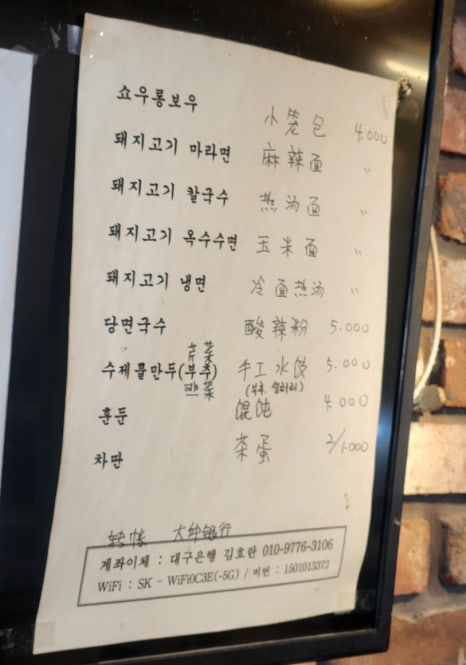 쇼우롱보우 小笼包 4.000
돼지고기 마라면 麻辣面 〃
돼지고기 칼국수 热汤面 〃
돼지고기 옥수수면 玉米面 〃
돼지고기 냉면 冷面热汤 〃
당면국수 酸辣粉 5.000
芹菜
수제물만두(부추) 手工水饺 5.000
韭菜 (부추. 샐러리)
훈둔 馄饨 4000
차딴 茶蛋 2/1.000
转帐 大邱银行
계좌이체 : 대구은행 김호란 010-9776-3106
WiFi : SK - WiFi0C3E(-5G) / 비번 : 1501013372